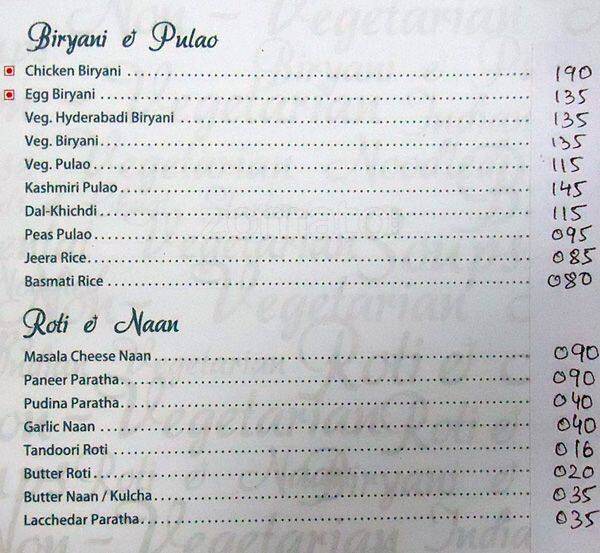 Biryani & Pulao
Chicken Biryani 190
Egg Biryani 135
Veg. Hyderabadi Biryani 135
Veg. Biryani 135
Veg. Pulao 115
Kashmiri Pulao 145
Dal-Khichdi 115
Peas Pulao 095
Jeera Rice 085
Basmati Rice 080
Roti & Naan
Masala Cheese Naan 090
Paneer Paratha 090
Pudina Paratha 040
Garlic Naan 040
Tandoori Roti 016
Butter Roti 020
Butter Naan / Kulcha 035
Lacchedar Paratha 035